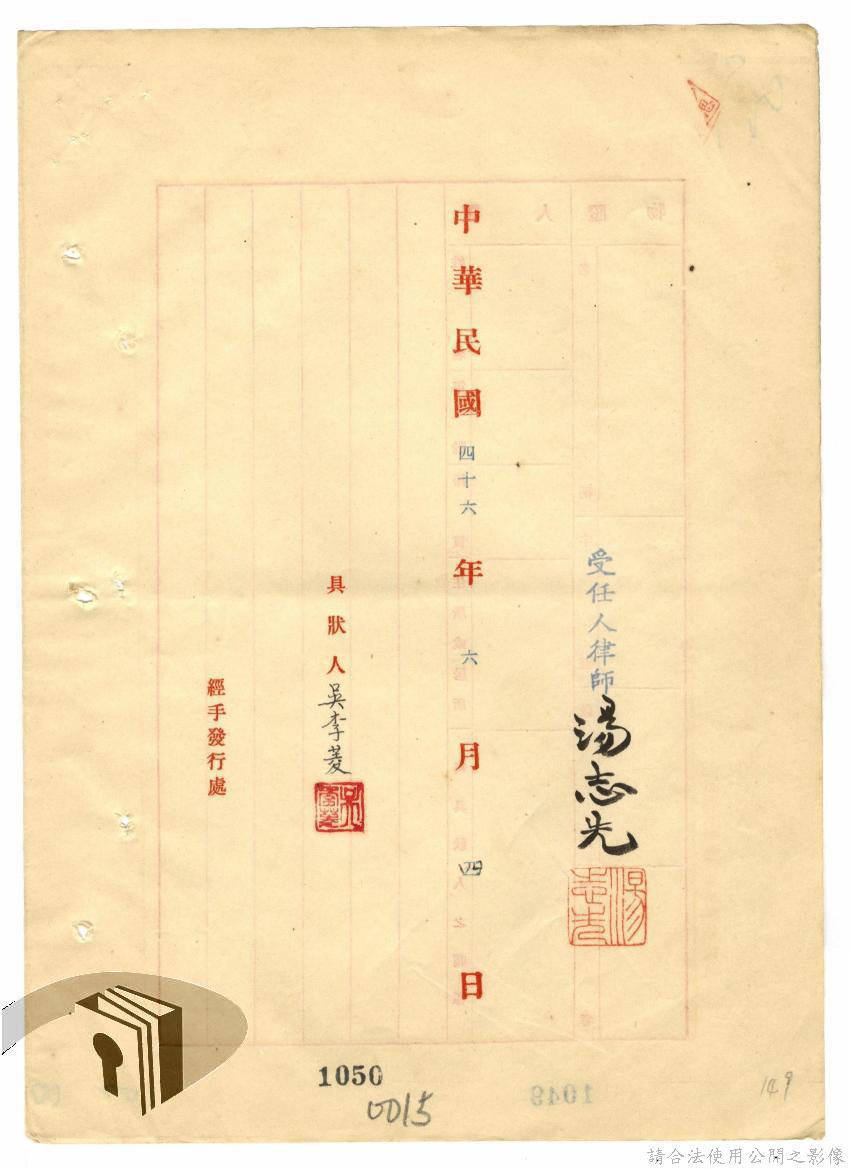 受任人律師湯志先
湯志先
中華民國四十六年六月四日
具狀人吳李菱
經手發行處
1050
0015
149
請合法使用公開之影像